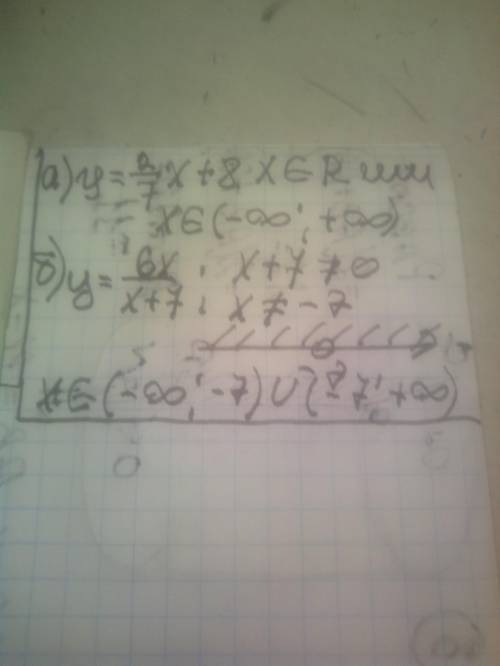 а) y = 2/7 x + 8, x ∈ R или
x ∈ (-∞; +∞)
б) y = 6x / x+7; x + 7 ≠ 0
x ≠ -7
x ∈ (-∞; -7) ∪ (-7; +∞)